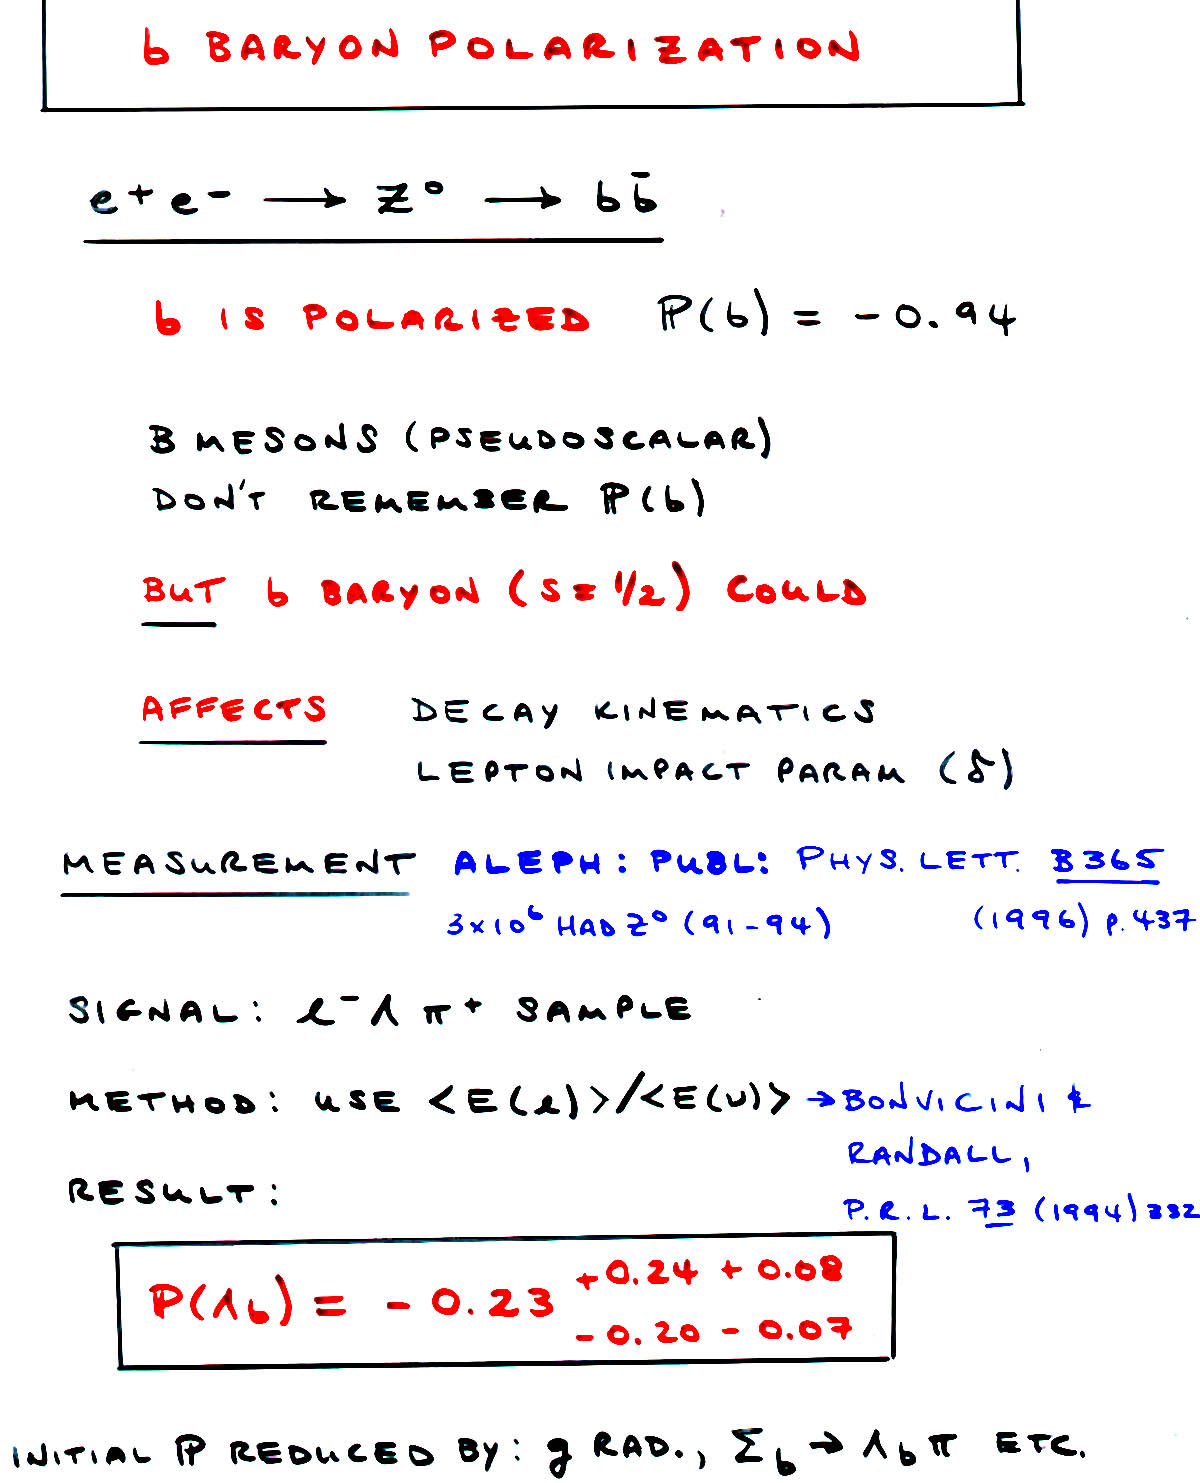 b BARYON POLARIZATION
e+ e- → Z⁰ → b b̄
b IS POLARIZED ℙ(b) = -0.94
B MESONS (PSEUDOSCALAR)
DON'T REMEMBER ℙ(b)
BUT b BARYON (S = 1/2) COULD
AFFECTS DECAY KINEMATICS
LEPTON IMPACT PARAM (δ)
MEASUREMENT ALEPH: PUBL: PHYS. LETT. B365
3×10⁶ HAD Z⁰ (91-94) (1996) P. 437
SIGNAL: ℓ⁻ Λ π⁺ SAMPLE
METHOD: USE <E(ℓ)>/<E(ν)> → BONVICINI &
RANDALL,
RESULT:
P.R.L. 73 (1994) 332
P(Λb) = -0.23 +0.24 +0.08
-0.20 -0.07
INITIAL ℙ REDUCED BY: g RAD., Σb → Λb π ETC.